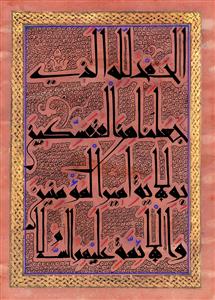 الحمد لله الذي
جعلنا من المتمسكين
بولاية أمير المؤمنين
والأئمة عليهم السلام